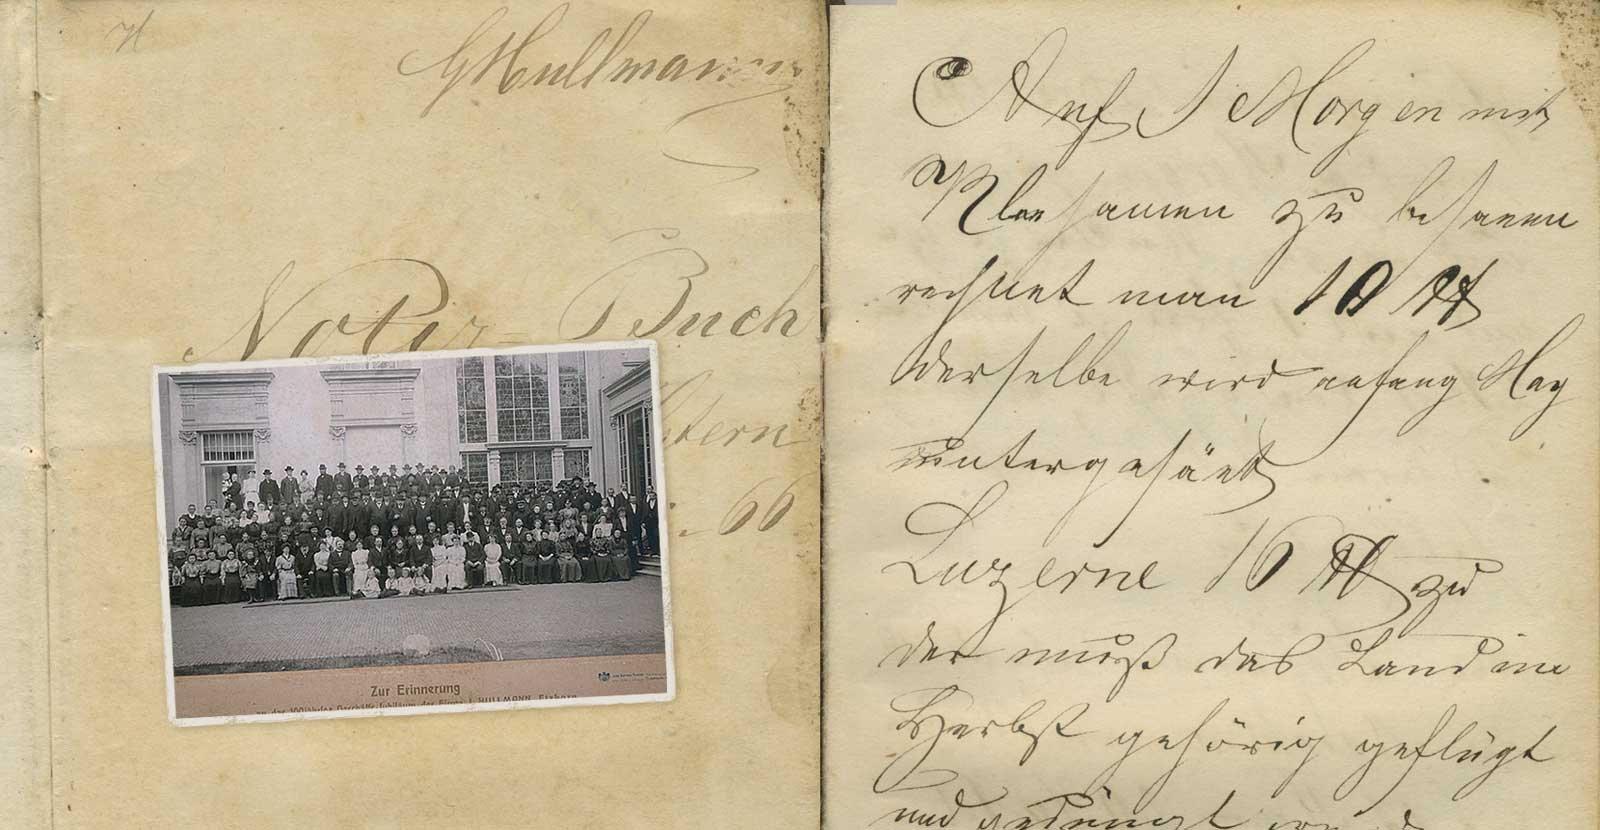 GHullmann
Notir=Buch
stern
66
Zur Erinnerung
an das 100jährige Geschäfts-Jubiläum der Firma J. HULLMANN, Etzhorn
Auf 1 Morgen mit
Kleesamen zu besaeen
rechnet man 10 ℔
derselbe wird anfang May
untergesäet
Luzerne 16 ℔ zu
der muß das Land im
Herbst gehörig geflügt
und gedüngt